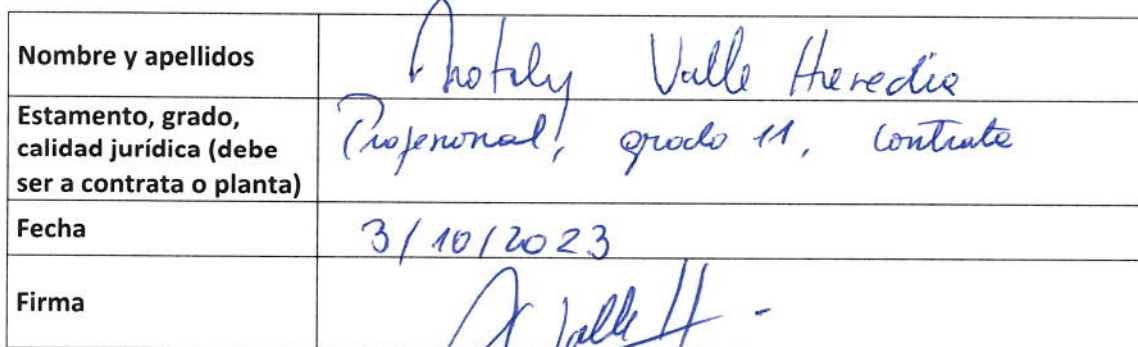 Nombre y apellidos
Nataly Valle Heredia
Estamento, grado,
calidad jurídica (debe
ser a contrata o planta)
Profesional, grado 11, contrata
Fecha
3/10/2023
Firma
Valle H